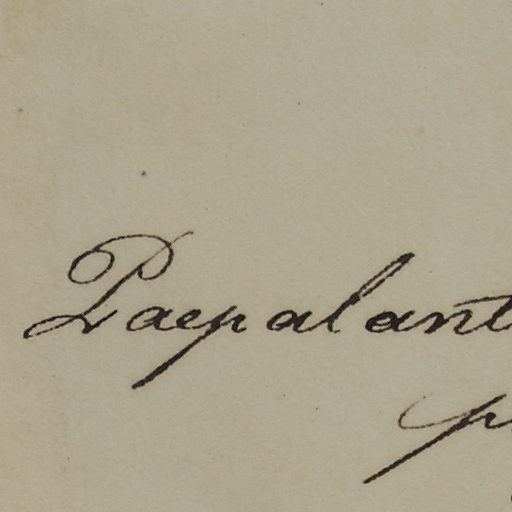 Paepalant
p